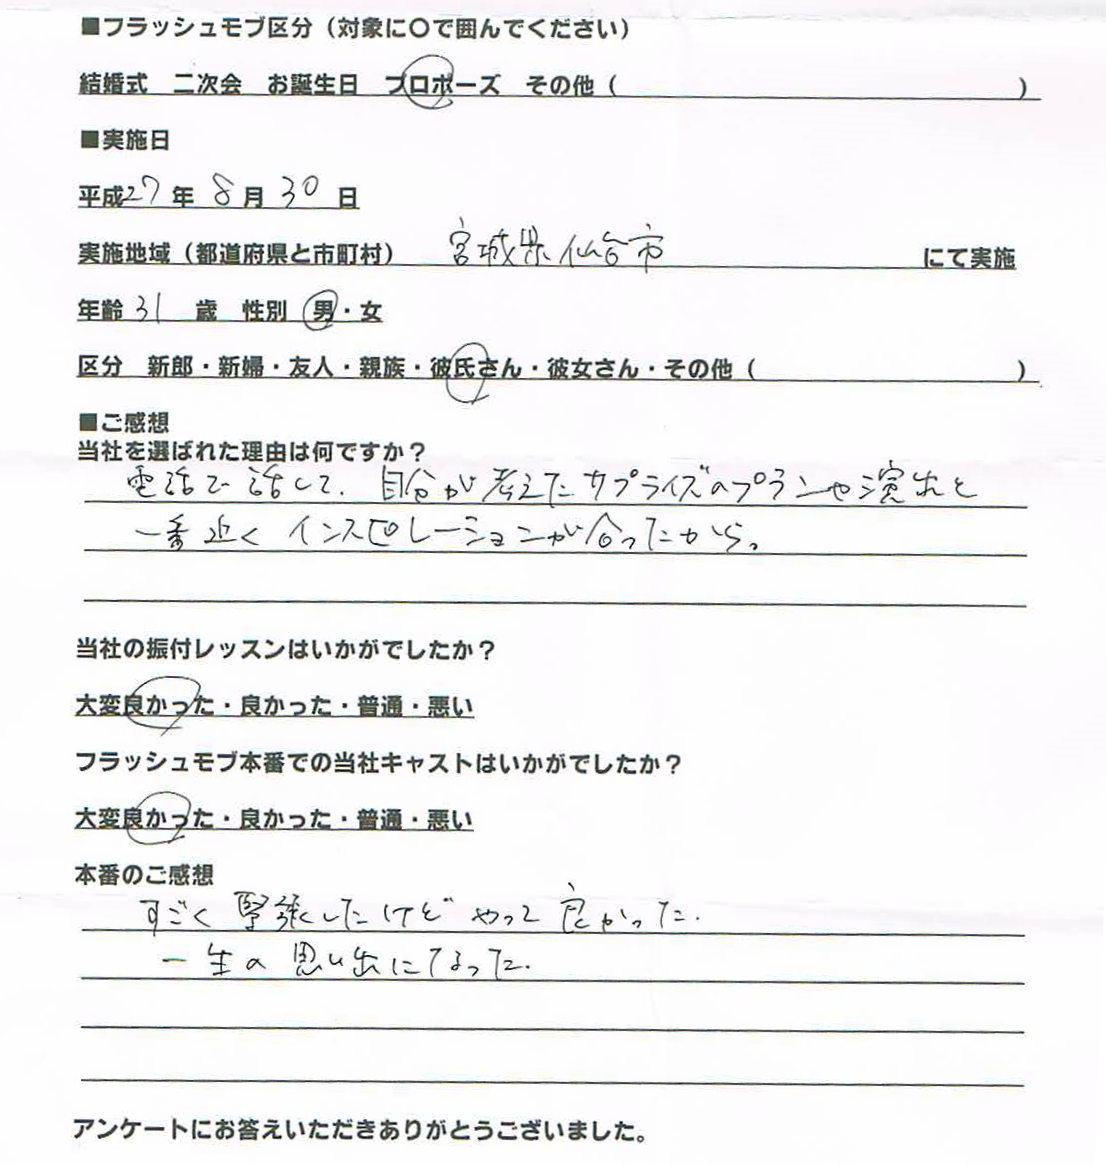 ■フラッシュモブ区分（対象に〇で囲んでください）
結婚式　二次会　お誕生日　プロポーズ　その他（　　　　　　　　　）
■実施日
平成27年 8月 30日
実施地域（都道府県と市町村）　宮城県仙台市　　　　　　にて実施
年齢 31 歳　性別　男・女
区分　新郎・新婦・友人・親族・彼氏さん・彼女さん・その他（　　　　　　　　）
■ご感想
当社を選ばれた理由は何ですか？
電話で話して、自分が考えたサプライズのプランや演出と
一番近くインスピレーションが合ったから。
当社の振付レッスンはいかがでしたか？
大変良かった・良かった・普通・悪い
フラッシュモブ本番での当社キャストはいかがでしたか？
大変良かった・良かった・普通・悪い
本番のご感想
すごく緊張したけどやって良かった.
一生の思い出になった.
アンケートにお答えいただきありがとうございました。